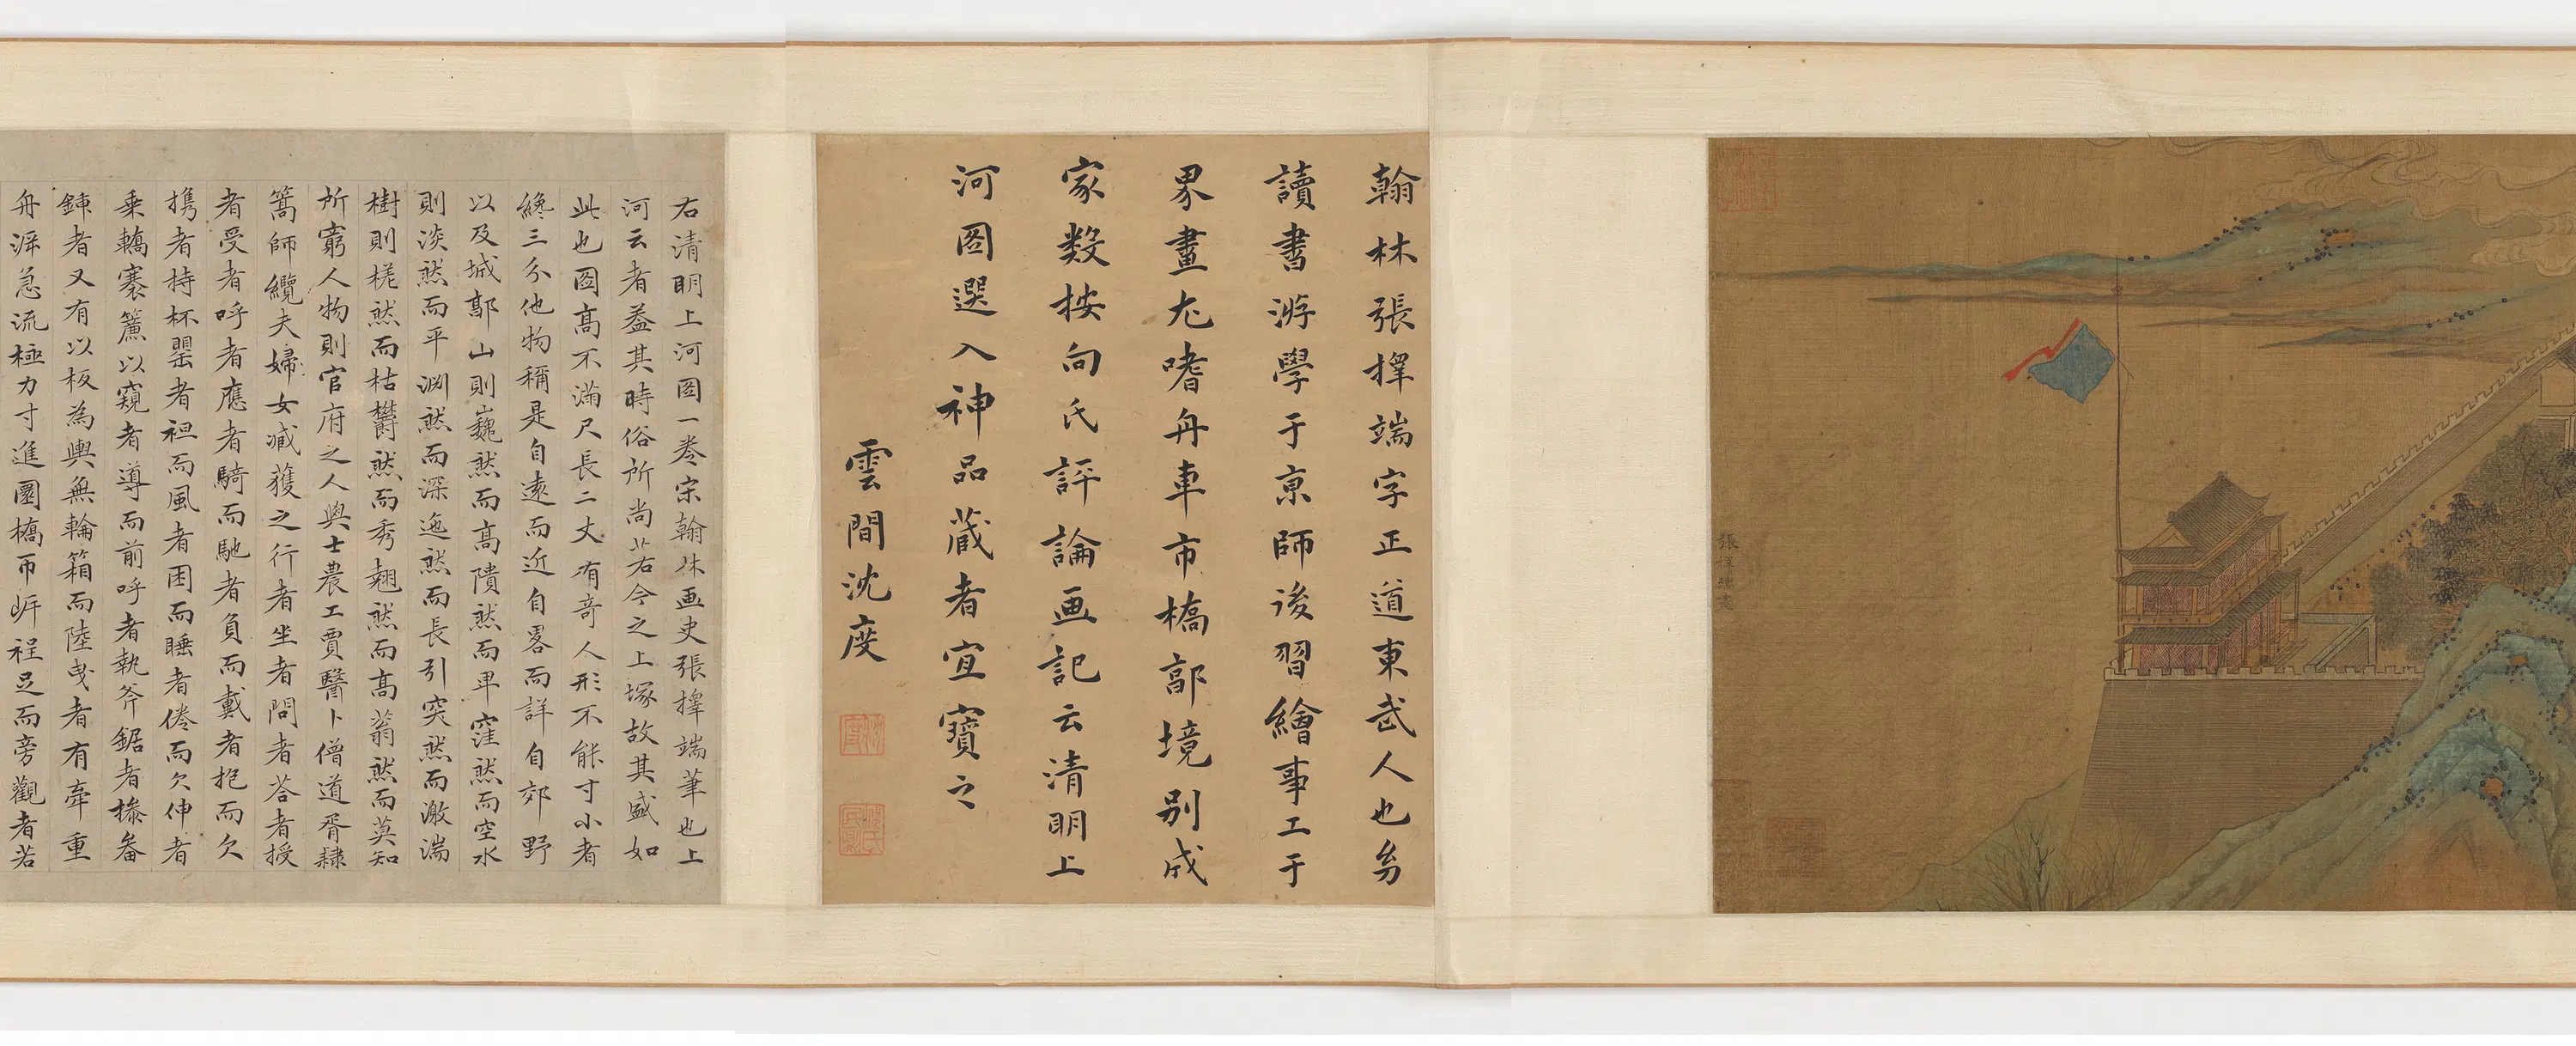 張擇端
翰林張擇端字正道東武人也幼
讀書游學于京師後習繪事工于
界畫尤嗜舟車市橋郭境別成
家数按向氏評論画記云清明上
河圖選入神品蔵者宜寶之
雲間沈度
沈度
沈氏民則
右清明上河圖一卷宋翰林画史張擇端筆也上
河云者葢其時俗所尚若今之上塚故其盛如
此也圖高不滿尺長二丈有奇人形不能寸小者
纔三分他物稱是自遠而近自畧而詳自郊野
以及城郭山則巍然而高隤然而卑窪然而空水
則淡然而平淵然而深迤然而長引突然而激湍
樹則槎然而枯欝然而秀翹然而高蓊然而莫知
所窮人物則官府之人與士農工賈醫卜僧道胥隸
篙師纜夫婦女臧獲之行者坐者問者荅者授
者受者呼者應者騎而馳者負而戴者抱而欠
携者持杯罌者袒而風者困而睡者倦而欠伸者
乗轎褰簾以窺者導而前呼者執斧鋸者摻畚
鍤者又有以板為輿無輪箱而陸曳者有牽重
舟泝急流極力寸進圜橋帀岸程足而旁觀者若